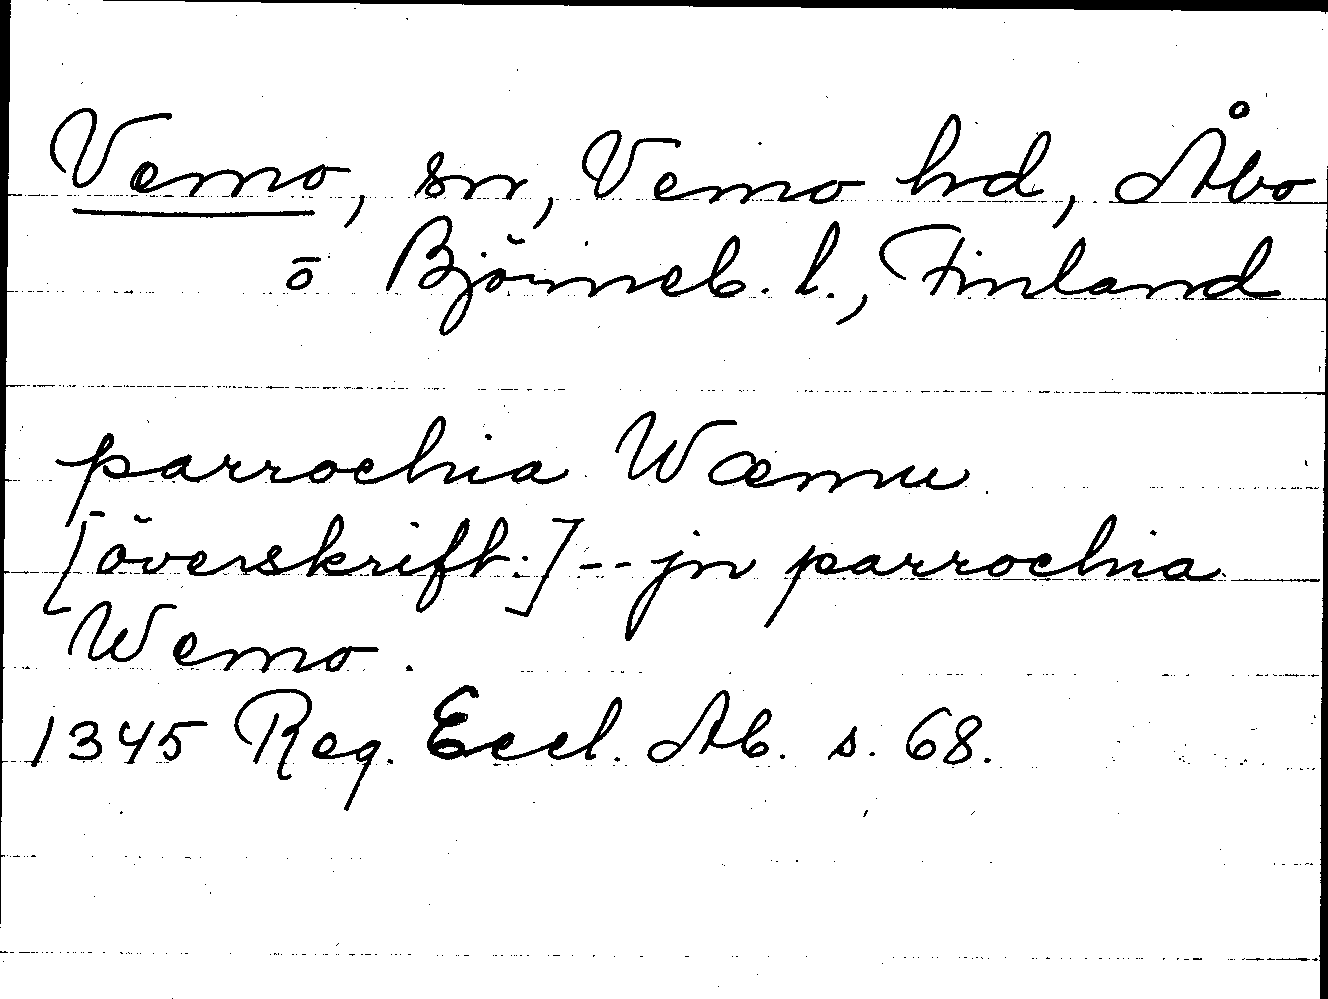 Vemo, sn, Vemo hd, Åbo
o Björneb. l., Finland
parrochia Wæmu
[överskrift:] -- jn parrochia
Wemo.
1345 Reg. Eccl. Ab. s. 68.